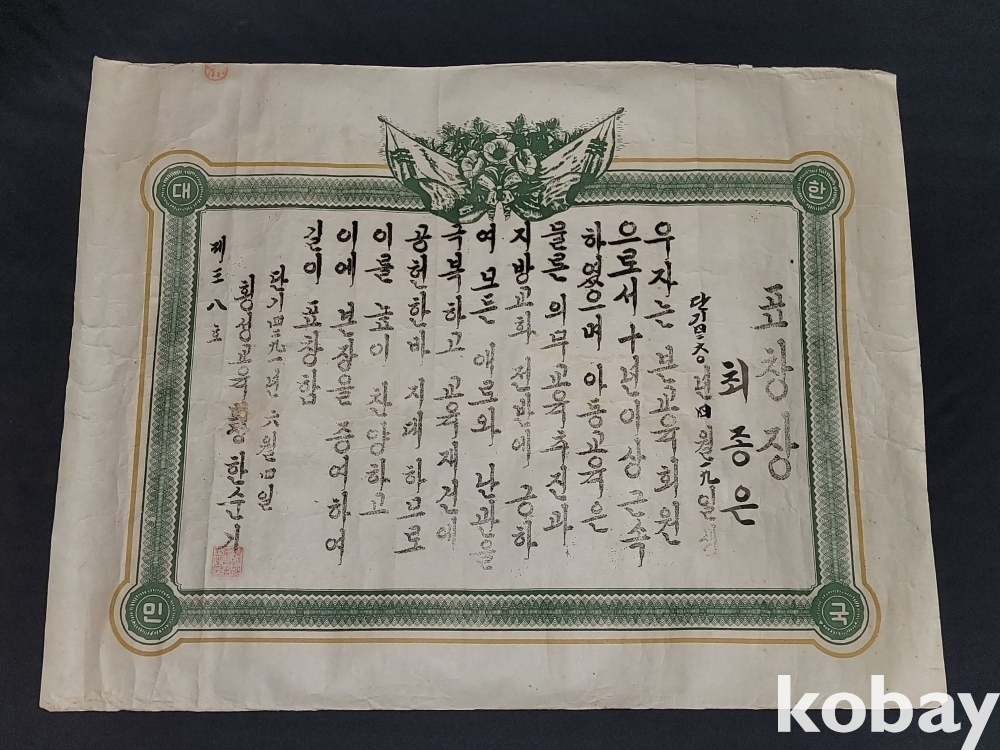 대
한
민
국
표창장
최종은
우자는 본교육회원
으로서 十년이상 근속
하였으며 아동교육은
물론 의무교육추진과
지방교화 전반에 긍하
여 모든 애로와 난관을
극복하고 교육재건에
공헌한바 지대하므로
이를 높이 찬양하고
이에 본장을 증여하여
길이 표창함
단기四二九一년 六월 四일
횡성교육 한순기
제三八호
kobay